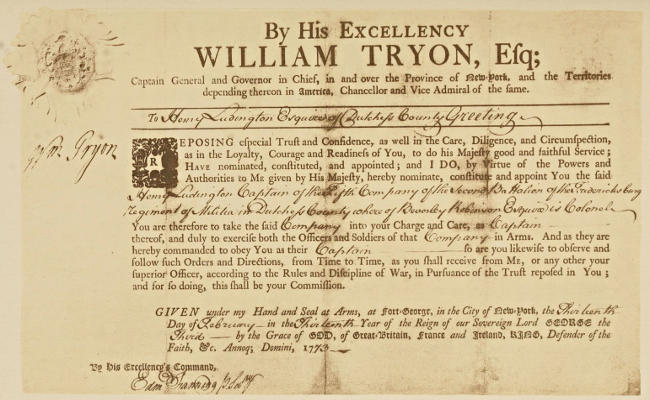 By His Excellency
WILLIAM TRYON, Esq;
Captain General and Governor in Chief, in and over the Province of New-York, and the Territories
depending thereon in America, Chancellor and Vice Admiral of the same.
To Henry Ludington Esquire of Dutchess County Greeting
Wm Tryon
REPOSING especial Trust and Confidence, as well in the Care, Diligence, and Circumspection,
as in the Loyalty, Courage and Readiness of You, to do his Majesty good and faithful Service;
HAVE nominated, constituted, and appointed; and I DO, by Virtue of the Powers and
Authorities to ME given by His Majesty, hereby nominate, constitute and appoint You the said
Henry Ludington Captain of the Fifth Company of the Second Battalion of the Fredericksburg
Regiment of Militia in Dutchess County whereof Beverly Robinson Esquire is Colonel
You are therefore to take the said Company into your Charge and Care, as Captain
thereof, and duly to exercise both the Officers and Soldiers of that Company in Arms. And as they are
hereby commanded to obey You as their Captain so are you likewise to observe and
follow such Orders and Directions, from Time to Time, as you shall receive from ME, or any other your
superior Officer, according to the Rules and Discipline of War, in Pursuance of the Trust reposed in You;
and for so doing, this shall be your Commission.
GIVEN under my Hand and Seal at Arms, at Fort-George, in the City of New-York, the Thirteenth
Day of February in the Thirteenth Year of the Reign of our Sovereign Lord GEORGE the
Third by the Grace of GOD, of Great-Britain, France and Ireland, KING, Defender of the
Faith, &c. Annoq; Domini, 1773
By His Excellency's Command,